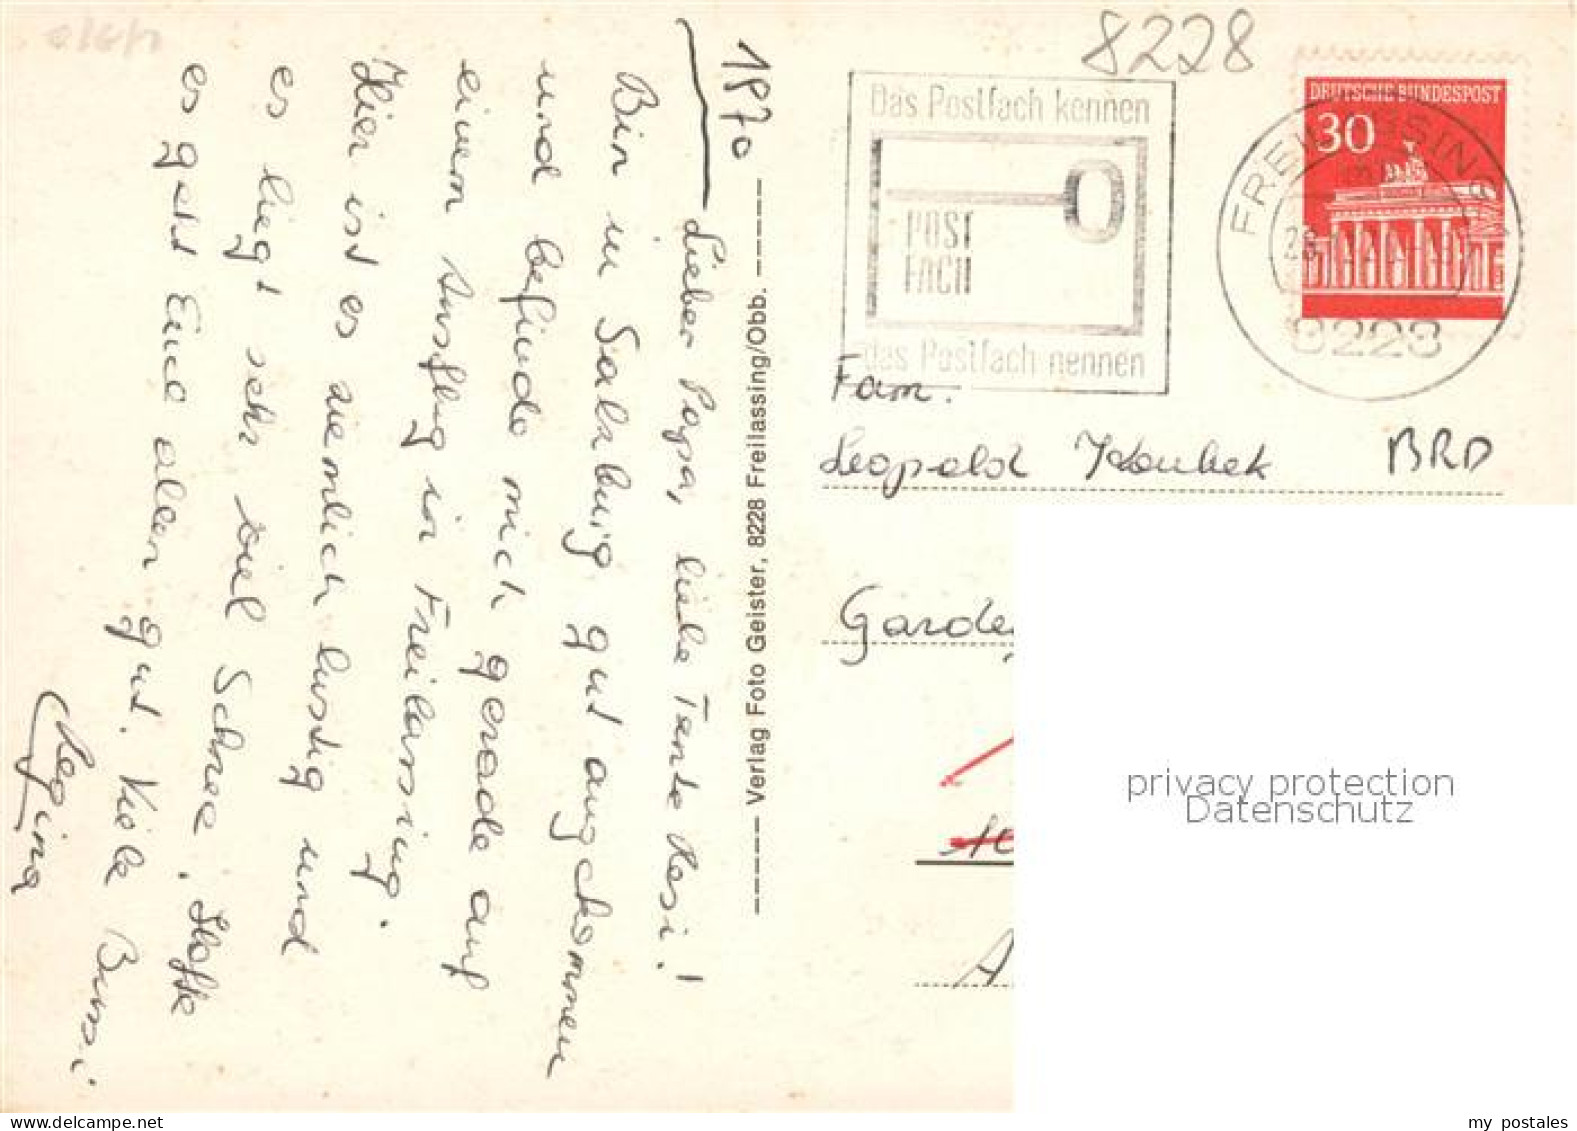 8228
1970
Lieber Papa, liebe Tante Resi!
Bin in Salzburg gut angekommen
und befinde mich gerade auf
einem Ausflug in Freilassing.
Hier ist es ziemlich lustig und
es liegt sehr viel Schnee. Hoffe
es geht Euch allen gut. Viele Bussi
Regina
Verlag Foto Geister, 8228 Freilassing/Obb.
Das Postfach kennen
POST
FACH
das Postfach nennen
DEUTSCHE BUNDESPOST
30
FREILASSING
8228
Fam.
Leopold BRD
privacy protection
Datenschutz
my postales